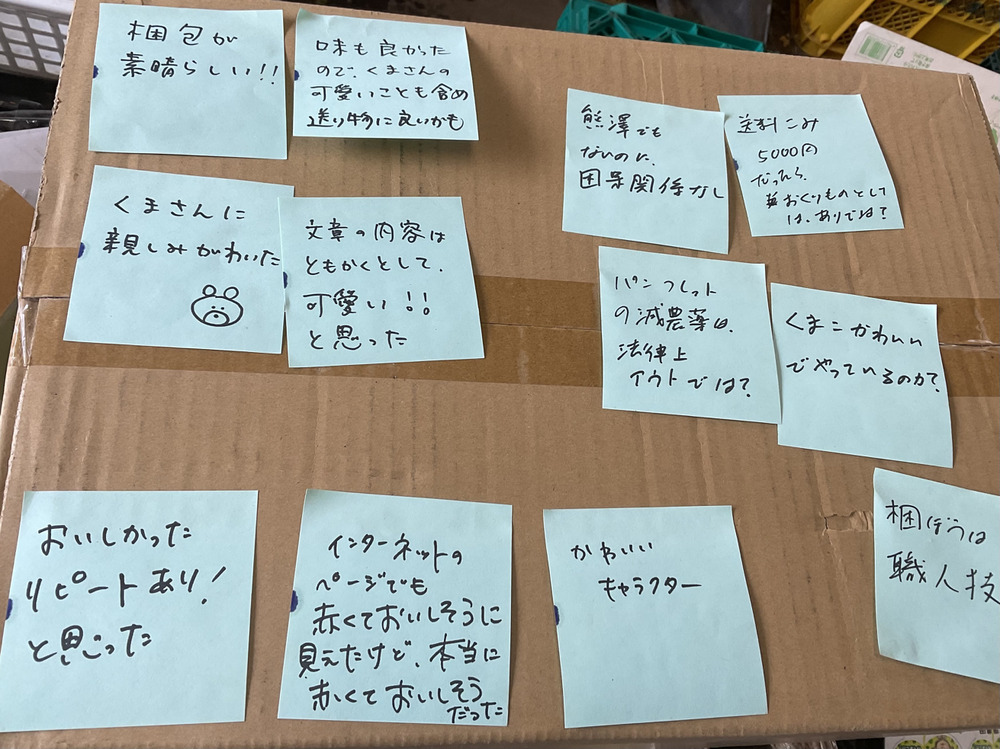 梱包が
素晴らしい!!
口味も良かった
ので、くまさんの
可愛いことも含め
送り物に良いかも
熊澤でも
ないのに、
因果関係なし
送料こみ
5000円
だったら、
おくりものとして
は、ありでは?
くまさんに
親しみがわいた
文章の内容は
ともかくとして、
可愛い!!
と思った
パンフレット
の減農薬は、
法律上
アウトでは?
くまこかわいい
でやっているのか?
おいしかった
リピートあり!
と思った
インターネットの
ページでも
赤くておいしそうに
見えたけど、本当に
赤くておいしそう
だった
かわいい
キャラクター
梱ぽうは
職人技